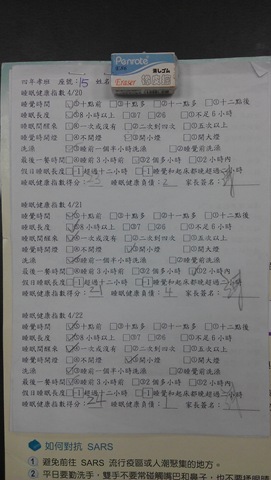 Penrote
Eraser
四年孝班 座號:15 姓名
睡眠健康指數 4/20
睡覺時間 ⑤十點前 ③十點多 ②十一點多 ①十二點後
睡眠長度 ⑧8 小時以上 ⑦7 ⑥6 ⑤不足 6 小時
睡眠間醒來 ④一次或沒有 ②二次到四次 ①五次以上
睡覺時間燈 ④不開燈 ③開小燈 ①開大燈
洗澡 ③睡前一個半小時洗澡 ②睡覺前洗澡
最後一餐時間 ④睡前 3 小時前 ③3 小時 ②2 小時內
假日睡眠長度 -1 超過十二小時 -1 睡覺和起床都晚超過 2 小時
睡眠健康指數得分: 睡眠健康負債: 家長簽名:
睡眠健康指數 4/21
睡覺時間 ⑤十點前 ③十點多 ②十一點多 ①十二點後
睡眠長度 ⑧8 小時以上 ⑦7 ⑥6 ⑤不足 6 小時
睡眠間醒來 ④一次或沒有 ②二次到四次 ①五次以上
睡覺時間燈 ④不開燈 ③開小燈 ①開大燈
洗澡 ③睡前一個半小時洗澡 ②睡覺前洗澡
最後一餐時間 ④睡前 3 小時前 ③3 小時 ②2 小時內
假日睡眠長度 -1 超過十二小時 -1 睡覺和起床都晚超過 2 小時
睡眠健康指數得分: 睡眠健康負債: 4 家長簽名:
睡眠健康指數 4/22
睡覺時間 ⑤十點前 ③十點多 ②十一點多 ①十二點後
睡眠長度 ⑧8 小時以上 ⑦7 ⑥6 ⑤不足 6 小時
睡眠間醒來 ④一次或沒有 ②二次到四次 ①五次以上
睡覺時間燈 ④不開燈 ③開小燈 ①開大燈
洗澡 ③睡前一個半小時洗澡 ②睡覺前洗澡
最後一餐時間 ④睡前 3 小時前 ③3 小時 ②2 小時內
假日睡眠長度 -1 超過十二小時 -1 睡覺和起床都晚超過 2 小時
睡眠健康指數得分: 睡眠健康負債: 家長簽名:
如何對抗 SARS
1 避免前往 SARS 流行疫區或人潮聚集的地方。
2 平日要勤洗手,雙手不要常碰觸嘴巴和鼻子